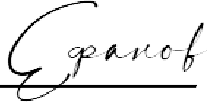 Ефанов